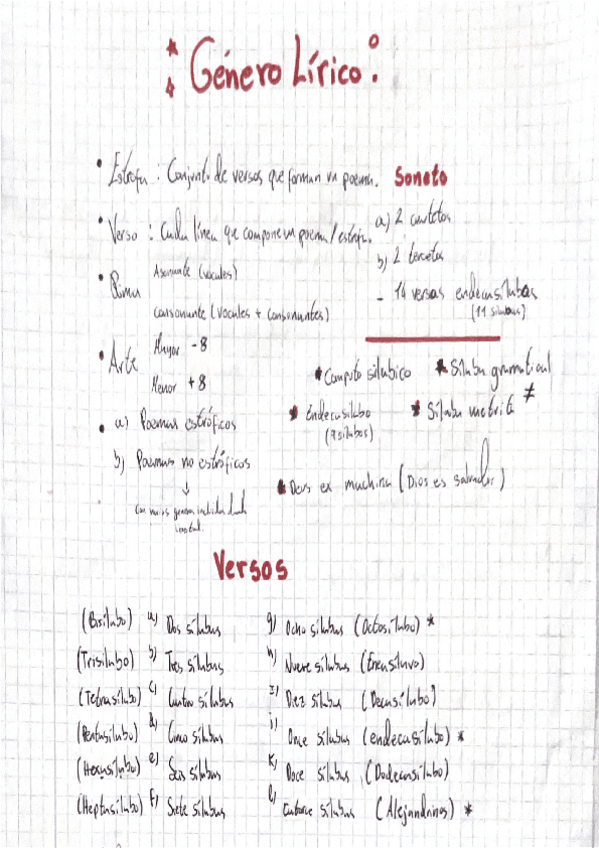 Género Lírico
• Estrofa : Conjunto de versos que forman un poema.
• Verso : Cada línea que compone un poema / estrofa.
• Rima
Asonante (vocales)
consonante (vocales + consonantes)
• Arte
Mayor -8
Menor +8
• a) Poemas estróficos
b) Poemas no estróficos
↓
Soneto
a) 2 cuartetos
b) 2 tercetos
- 14 versos endecasílabos
(11 sílabas)
* Computo silabico * Sílaba gramatical
≠
* Endecasilabo * Sílaba metrica
* Deus ex machina (Dios es salvador)
Versos
(Bisílabo) a) Dos sílabas
(Trisílabo) b) Tres sílabas
(Tetrasílabo) c) Cuatro sílabas
(Pentasílabo) d) Cinco sílabas
(Hexasílabo) e) Seis sílabas
(Heptasílabo) f) Siete sílabas
g) Ocho sílabas (Octosílabo) *
h) Nueve sílabas
I) Diez sílabas (Decasílabo)
j) Once sílabas (endecasílabo) *
K) Doce sílabas (Dodecasílabo)
l) Catorce sílabas (Alejandrinos) *